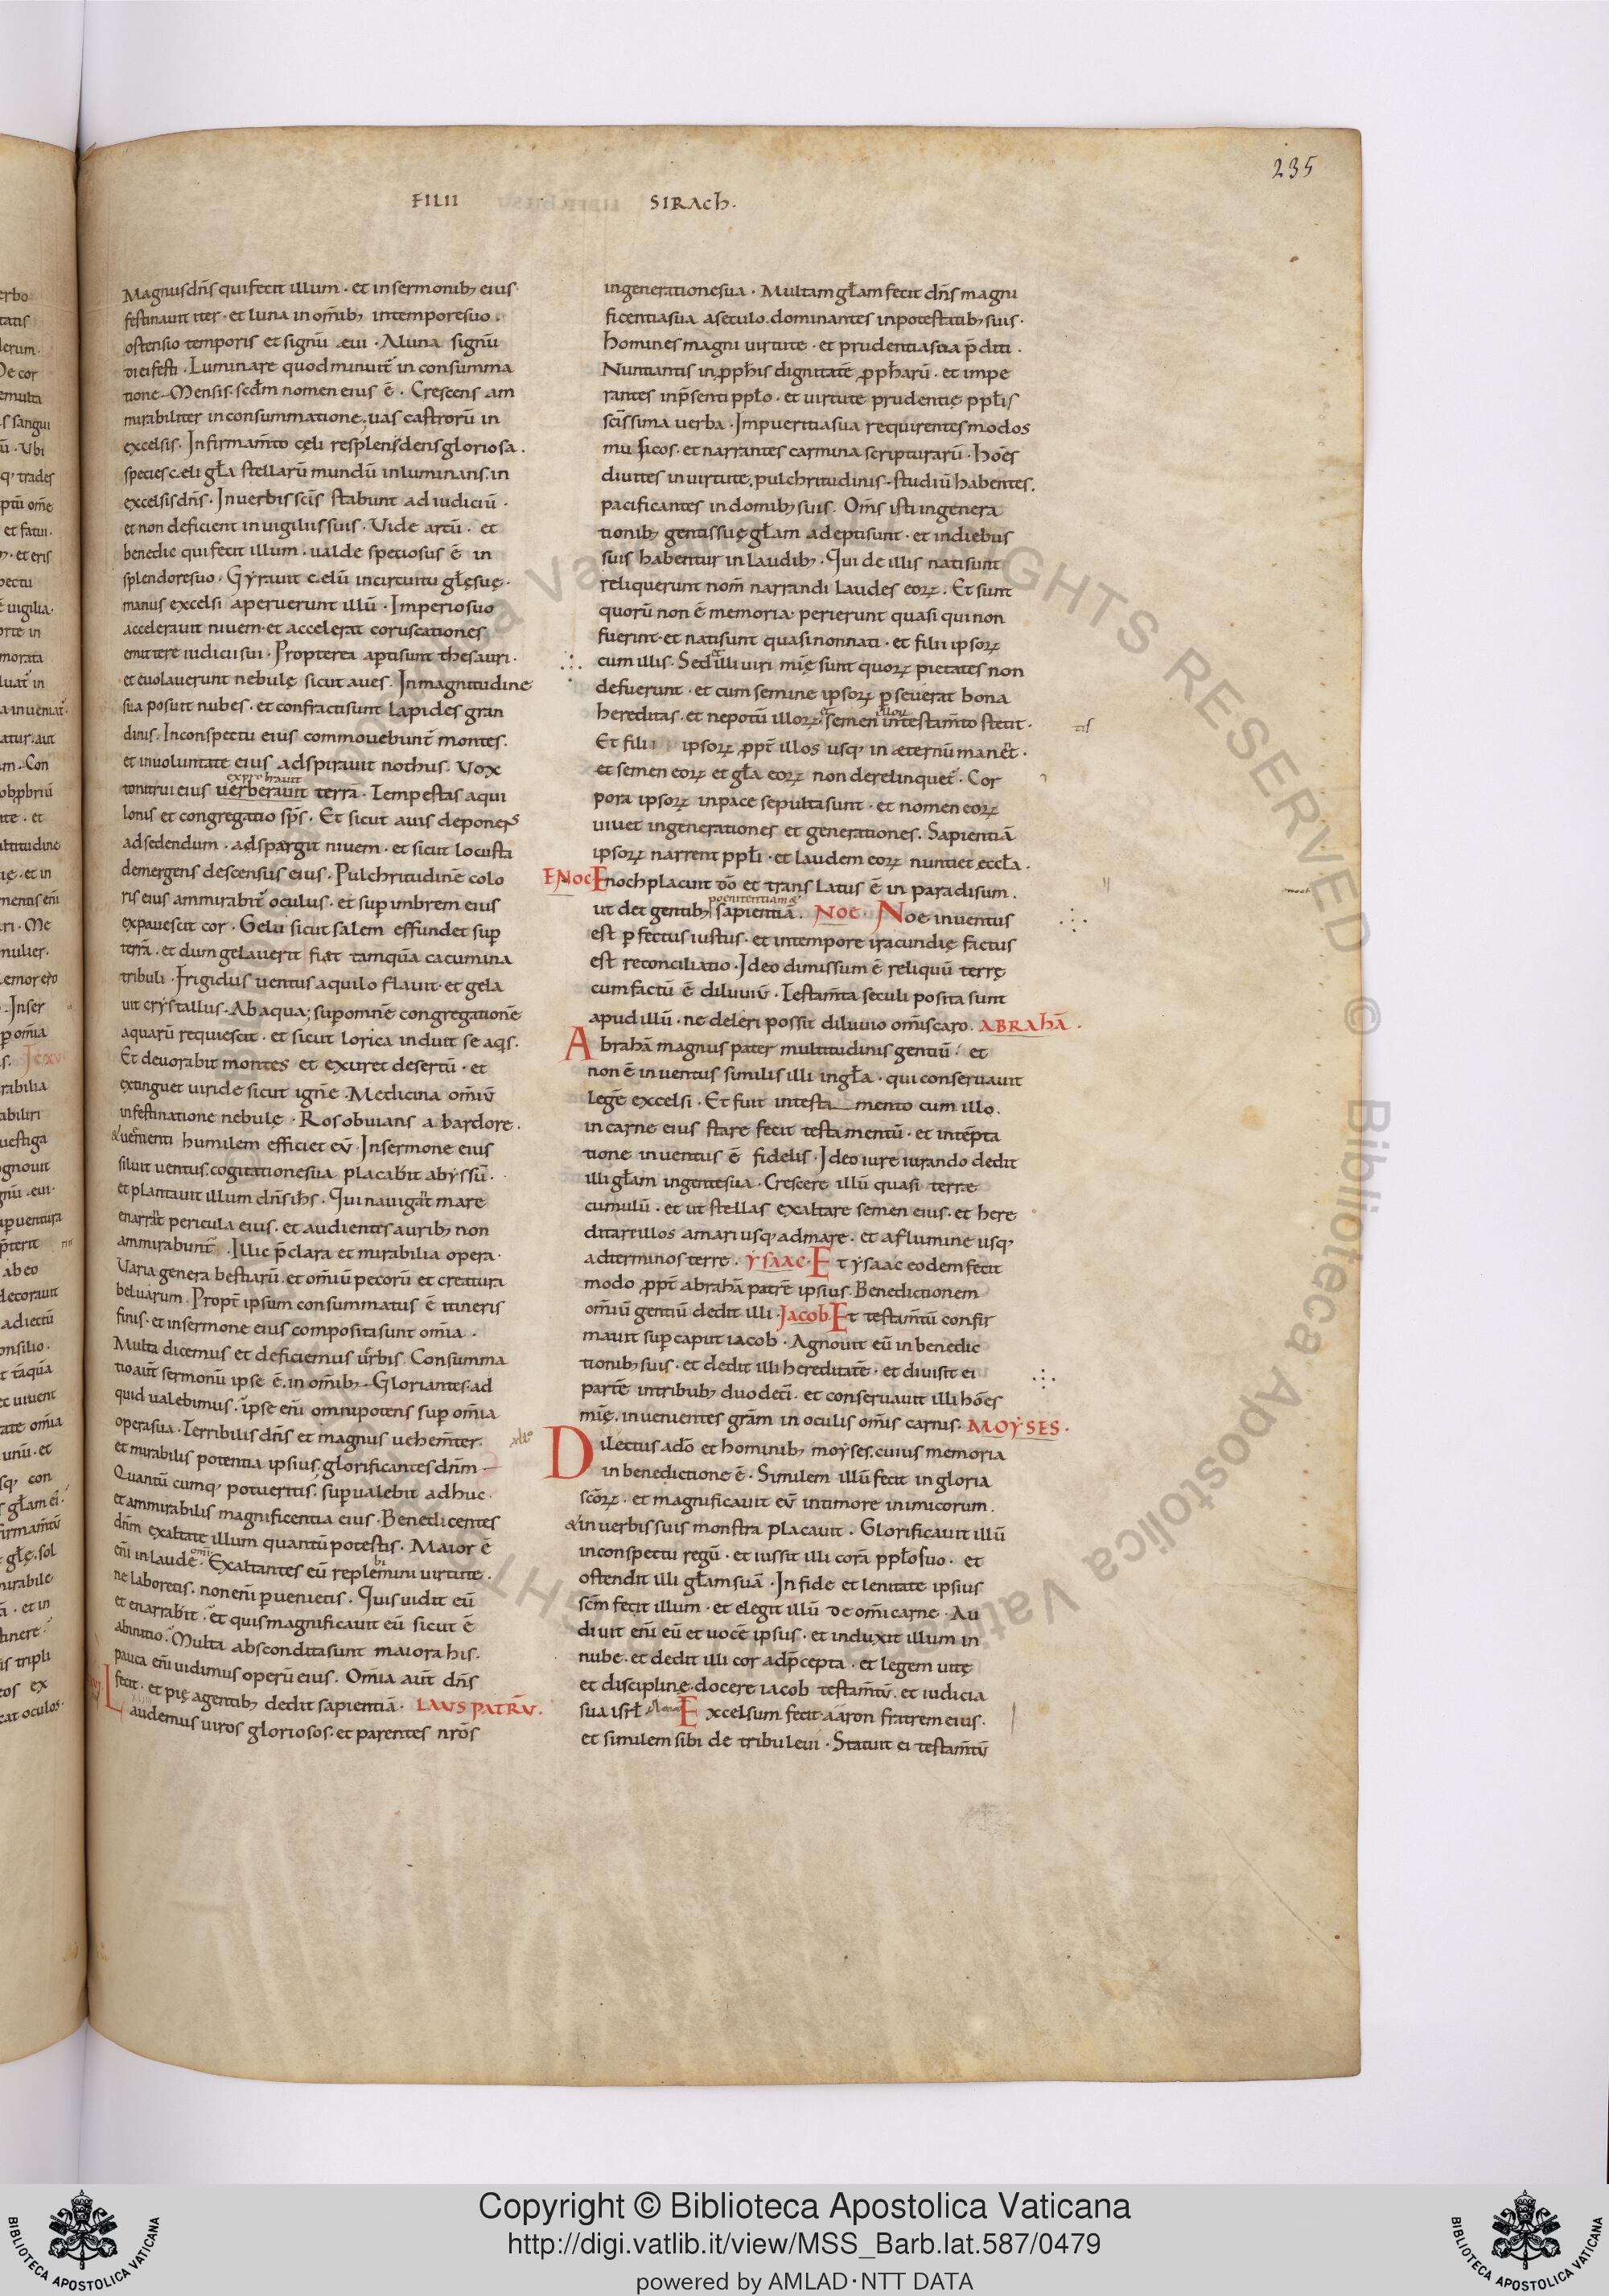 235
FILII SIRACh.
Magnus dn̄s qui fecit illum · et in sermonib; eius
festinauit iter · et luna in om̄ib; in tempore suo ·
ostensio temporis et signū eui · A luna signū
diei festi · Luminare quod minuit̄ in consumma
tione · Mensis scd̄m nomen eius ē · Crescens am
mirabiliter in consummatione · uas castrorū in
excelsis · In firmam̄to cęli resplendens gloriosa ·
species cęli gła stellarū mundū inluminans in
excelsis dn̄s · In uerbis sc̄is stabunt ad iudiciū ·
et non deficient in uigiliis suis · Vide arcū · et
benedic qui fecit illum · ualde speciosus ē in
splendore suo · Gyrauit cęlū in circuitu głę suę ·
manus excelsi aperuerunt illū · Imperio suo
accelerauit niuem · et accelerat coruscationes
emittere iudicii sui · Propterea apti sunt thesauri ·
et euolauerunt nebulę sicut aues · In magnitudine
sua posuit nubes · et confracti sunt lapides gran
dinis · In conspectu eius commouebunt̄ montes ·
et in uoluntate eius adspirauit nothus · Vox
exprobrauit
tonitrui eius uerberauit terra · Tempestas aqui
lonis et congregatio sp̄s · Et sicut auis deponens
ad sedendum · adspargit niuem · et sicut locusta
demergens descensus eius · Pulchritudinē colo
ris eius ammirabit̄ oculus · et sup imbrem eius
expauescit cor · Gelu sicut salem effundet sup
terrā · et dum gelauerit fiat tamquā cacumina
tribuli · Frigidus uentus aquilo flauit · et gela
uit crystallus · Ab aqua; sup omnē congregationē
aquarū requiescit · et sicut lorica induit se aq̄s ·
Et deuorabit montes et exuret desertū · et
extinguet uiride sicut ignē · Medicina om̄iū
in festinatione nebulę · Ros obuians ab ardore ·
& uenienti humilem efficiet eū · In sermone eius
siluit uentus · cogitatione sua placabit abyssū ·
et plantauit illum dn̄s ih̄s · Qui nauigat mare
enarrat pericula eius · et audientes aurib; non
ammirabunt̄ · Illic p̄clara et mirabilia opera ·
Varia genera bestiarū · et om̄iū pecorū et creatura
beluarum · Propt̄ ipsum consummatus ē itineris
finis · et in sermone eius composita sunt om̄ia ·
Multa dicemus et deficiemus uerbis · Consumma
tio aut̄ sermonū ipse ē · in om̄ib; · Gloriantes ad
quid ualebimus · ipse eni omnipotens sup om̄ia
opera sua · Terribilis dn̄s et magnus uehem̄ter ·
et mirabilis potentia ipsius · glorificantes dn̄m
Quantū cumq; potueritis · supualebit adhuc ·
et ammirabilis magnificentia eius · Benedicentes
dn̄m exaltate illum quantū potestis · Maior ē
omni
eni in laude · Exaltantes eū replemini uirtute ·
ne laboretis · non eni puenietis · Quis uidit eū
et enarrabit · et quis magnificauit eū sicut ē
ab initio · Multa abscondita sunt maiora his ·
pauca eni uidimus operū eius · Om̄ia aut̄ dn̄s
fecit · et pię agentib; dedit sapientiā · LAVS PATRV̄ ·
Laudemus uiros gloriosos · et parentes nr̄os
in generatione sua · Multam głam fecit dn̄s magni
ficentia sua a seculo · dominantes in potestatib; suis ·
homines magni uirtute · et prudentia sua p̄diti ·
Nuntiantis in pph̄is dignitatē pph̄arū · et impe
rantes in p̄senti ppło · et uirtute prudentię pplis
sc̄issima uerba · In pueritia sua requirentes modos
musicos · et narrantes carmina scripturarū · hōes
diuites in uirtute · pulchritudinis studiū habentes ·
pacificantes in domib; suis · Om̄s isti in genera
tionib; gentis suę głam adepti sunt · et in diebus
suis habentur in laudib; · Qui de illis nati sunt
reliquerunt nom̄ narrandi laudes eoꝝ · Et sunt
quorū non ē memoria · perierunt quasi qui non
fuerint · et nati sunt quasi non nati · et filii ipsoꝝ
cum illis · Sed illi uiri mię sunt quoꝝ pietates non
defuerunt · et cum semine ipsoꝝ pseuerat bona
hereditas · et nepotū illoꝝ · semen in testam̄to stetit ·
Et filii ipsoꝝ ppt̄ illos usq; in æternū manet ·
et semen eoꝝ et gła eoꝝ non derelinquet̄ · Cor
pora ipsoꝝ in pace sepulta sunt · et nomen eoꝝ
uiuet in generationes et generationes · Sapientiā
ipsoꝝ narrent ppli · et laudem eoꝝ nuntiet eccła ·
ENOC Enoch placuit dō et translatus ē in paradisum ·
poenitentiam &
ut det gentib; sapientiā · NOE · Noe inuentus
est pfectus iustus · et in tempore iracundię factus
est reconciliatio · Ideo dimissum ē reliquū terrę
cum factū ē diluuiū · Testam̄ta seculi posita sunt
apud illū · ne deleri possit diluuio om̄is caro · ABRAHĀ ·
Abrahā magnus pater multitudinis gentiū · et
non ē inuentus similis illi in gła · qui conseruauit
legē excelsi · Et fuit in testamento cum illo ·
in carne eius stare fecit testamentū · et in tēpta
tione inuentus ē fidelis · Ideo iure iurando dedit
illi głam in gente sua · Crescere illū quasi terræ
cumulū · et ut stellas exaltare semen eius · et here
ditare illos a mari usq; ad mare · et a flumine usq;
ad terminos terre · YSAAC · Et ysaac eodem fecit
modo ppt̄ abrahā patrē ipsius · Benedictionem
om̄iū gentiū dedit illi · JACOB Et testam̄tū confir
mauit sup caput iacob · Agnouit eū in benedic
tionib; suis · et dedit illi hereditatē · et diuisit ei
partē in tribub; duodecī · et conseruauit illi hōes
mię · inuenientes grām in oculis om̄is carnis · MOYSES ·
Dilectus a dō et hominib; moyses · cuius memoria
in benedictione ē · Similem illū fecit in gloria
sc̄oꝝ · et magnificauit eū in timore inimicorum ·
& in uerbis suis monstra placauit · Glorificauit illū
in conspectu regū · et iussit illi corā pplo suo · et
ostendit illi głam suā · In fide et lenitate ipsius
sc̄m fecit illum · et elegit illū de om̄i carne · Au
diuit eni eū et uocē ipsius · et induxit illum in
nube · et dedit illi cor ad p̄cepta · et legem uitę
et disciplinę · docere iacob testam̄tū · et iudicia
sua isrł Excelsum fecit aaron fratrem eius ·
et similem sibi de tribu leui · Statuit ei testam̄tū
Copyright © Biblioteca Apostolica Vaticana
http://digi.vatlib.it/view/MSS_Barb.lat.587/0479
powered by AMLAD·NTT DATA
BIBLIOTECA APOSTOLICA VATICANA
BIBLIOTECA APOSTOLICA VATICANA